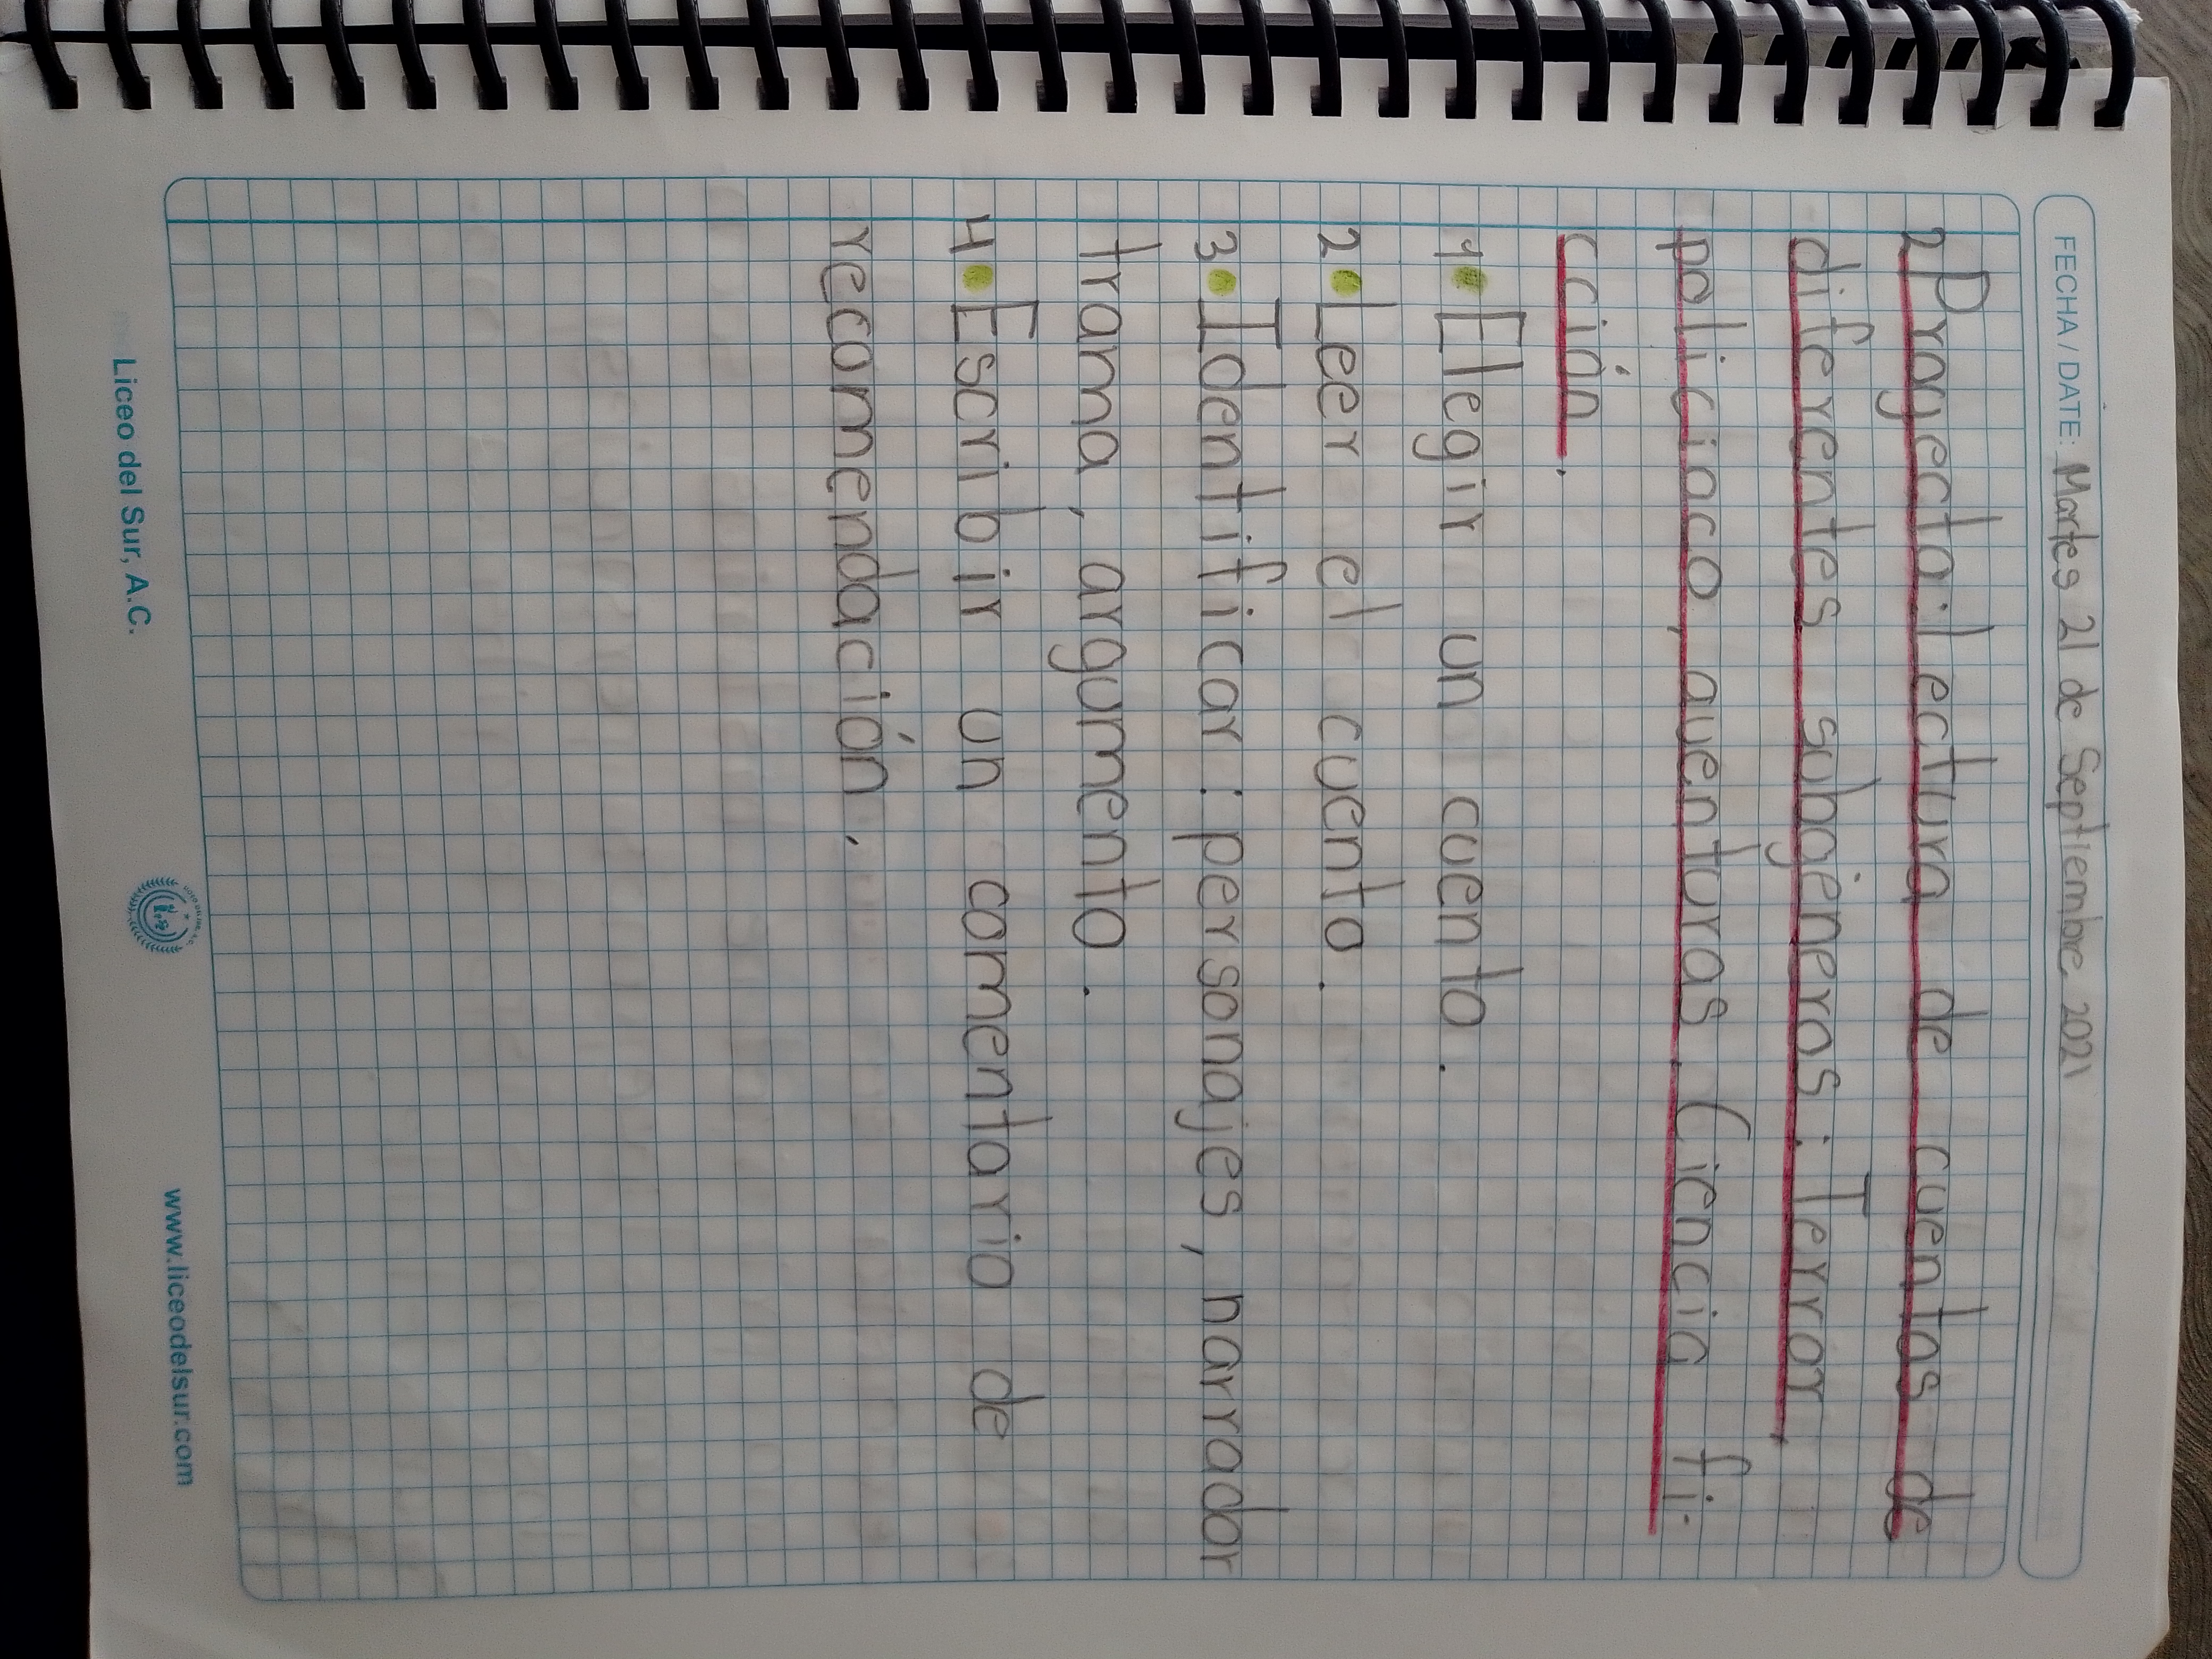 FECHA / DATE: Martes 21 de Septiembre 2021
2 Proyecto: Lectura de cuentos de
diferentes subgéneros: Terror,
policiaco, aventuras. Ciencia fi-
cción.
1. Elegir un cuento.
2. Leer el cuento.
3. Identificar: personajes, narrador
trama, argumento.
4. Escribir un comentario de
recomendación.
Liceo del Sur, A.C.
www.liceodelsur.com